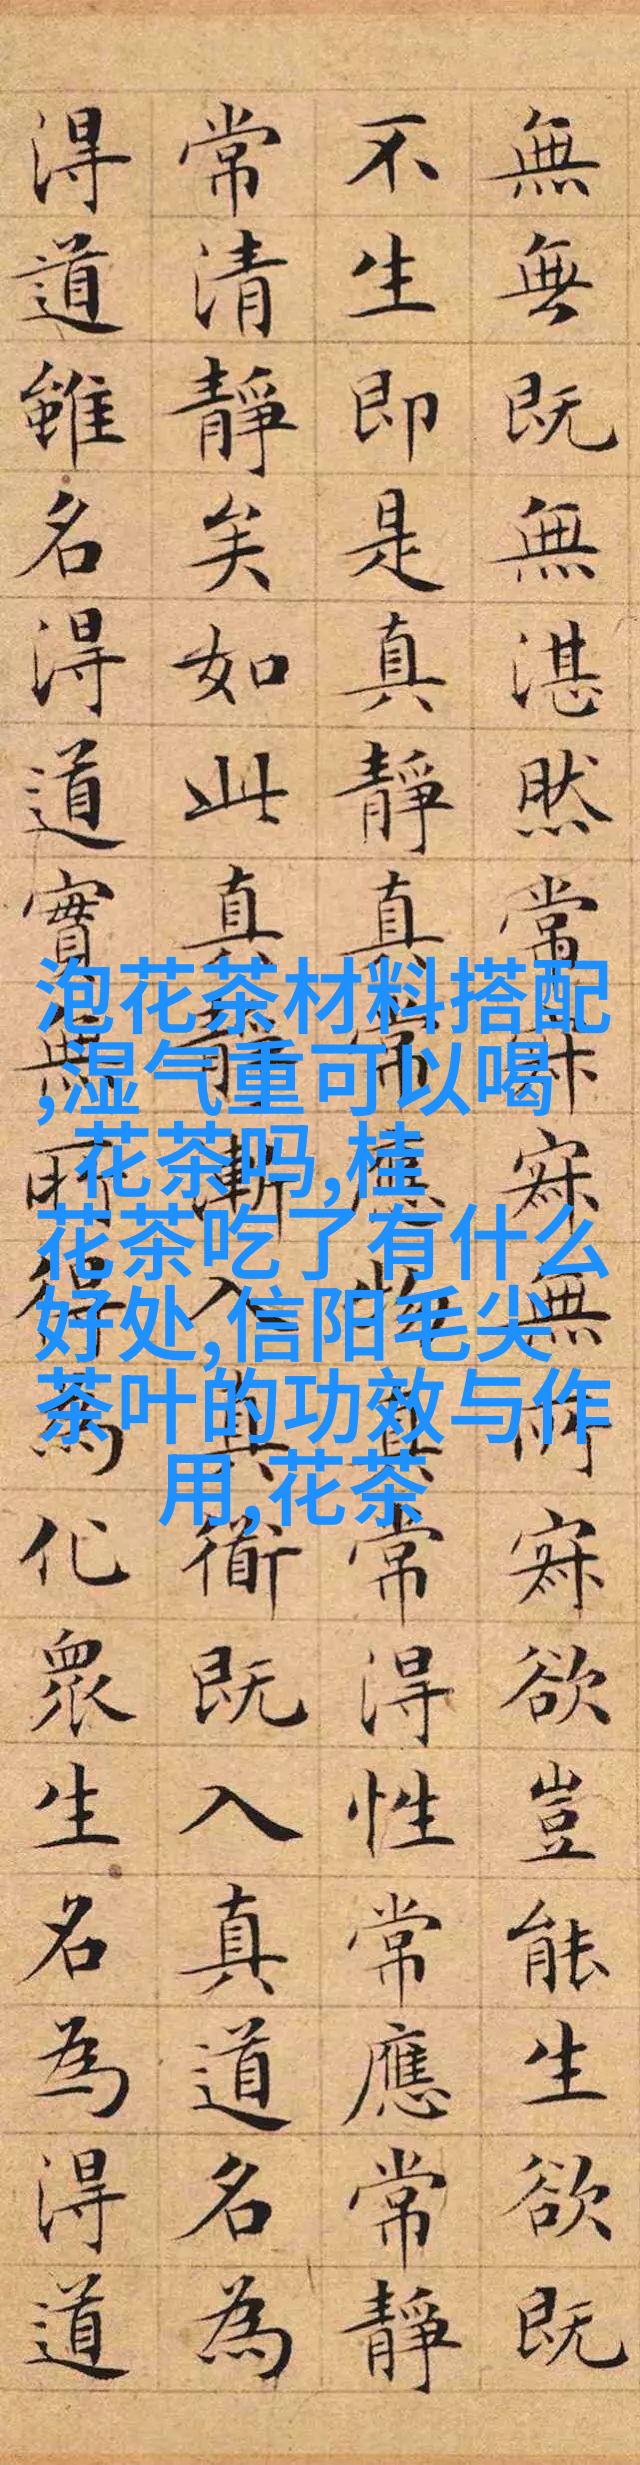 無無既無湛然常寂寂無所寂欲豈能生欲既
不生即是真靜真常應物真常得性常應常靜
常清靜矣如此真靜漸入真衜既入真道名為
得道雖名得道實無所得為化眾生名為得道
泡花茶材料搭配
,湿气重可以喝
花茶吗,桂
花茶吃了有什么
好处,信阳毛尖
茶叶的功效与作
用,花茶